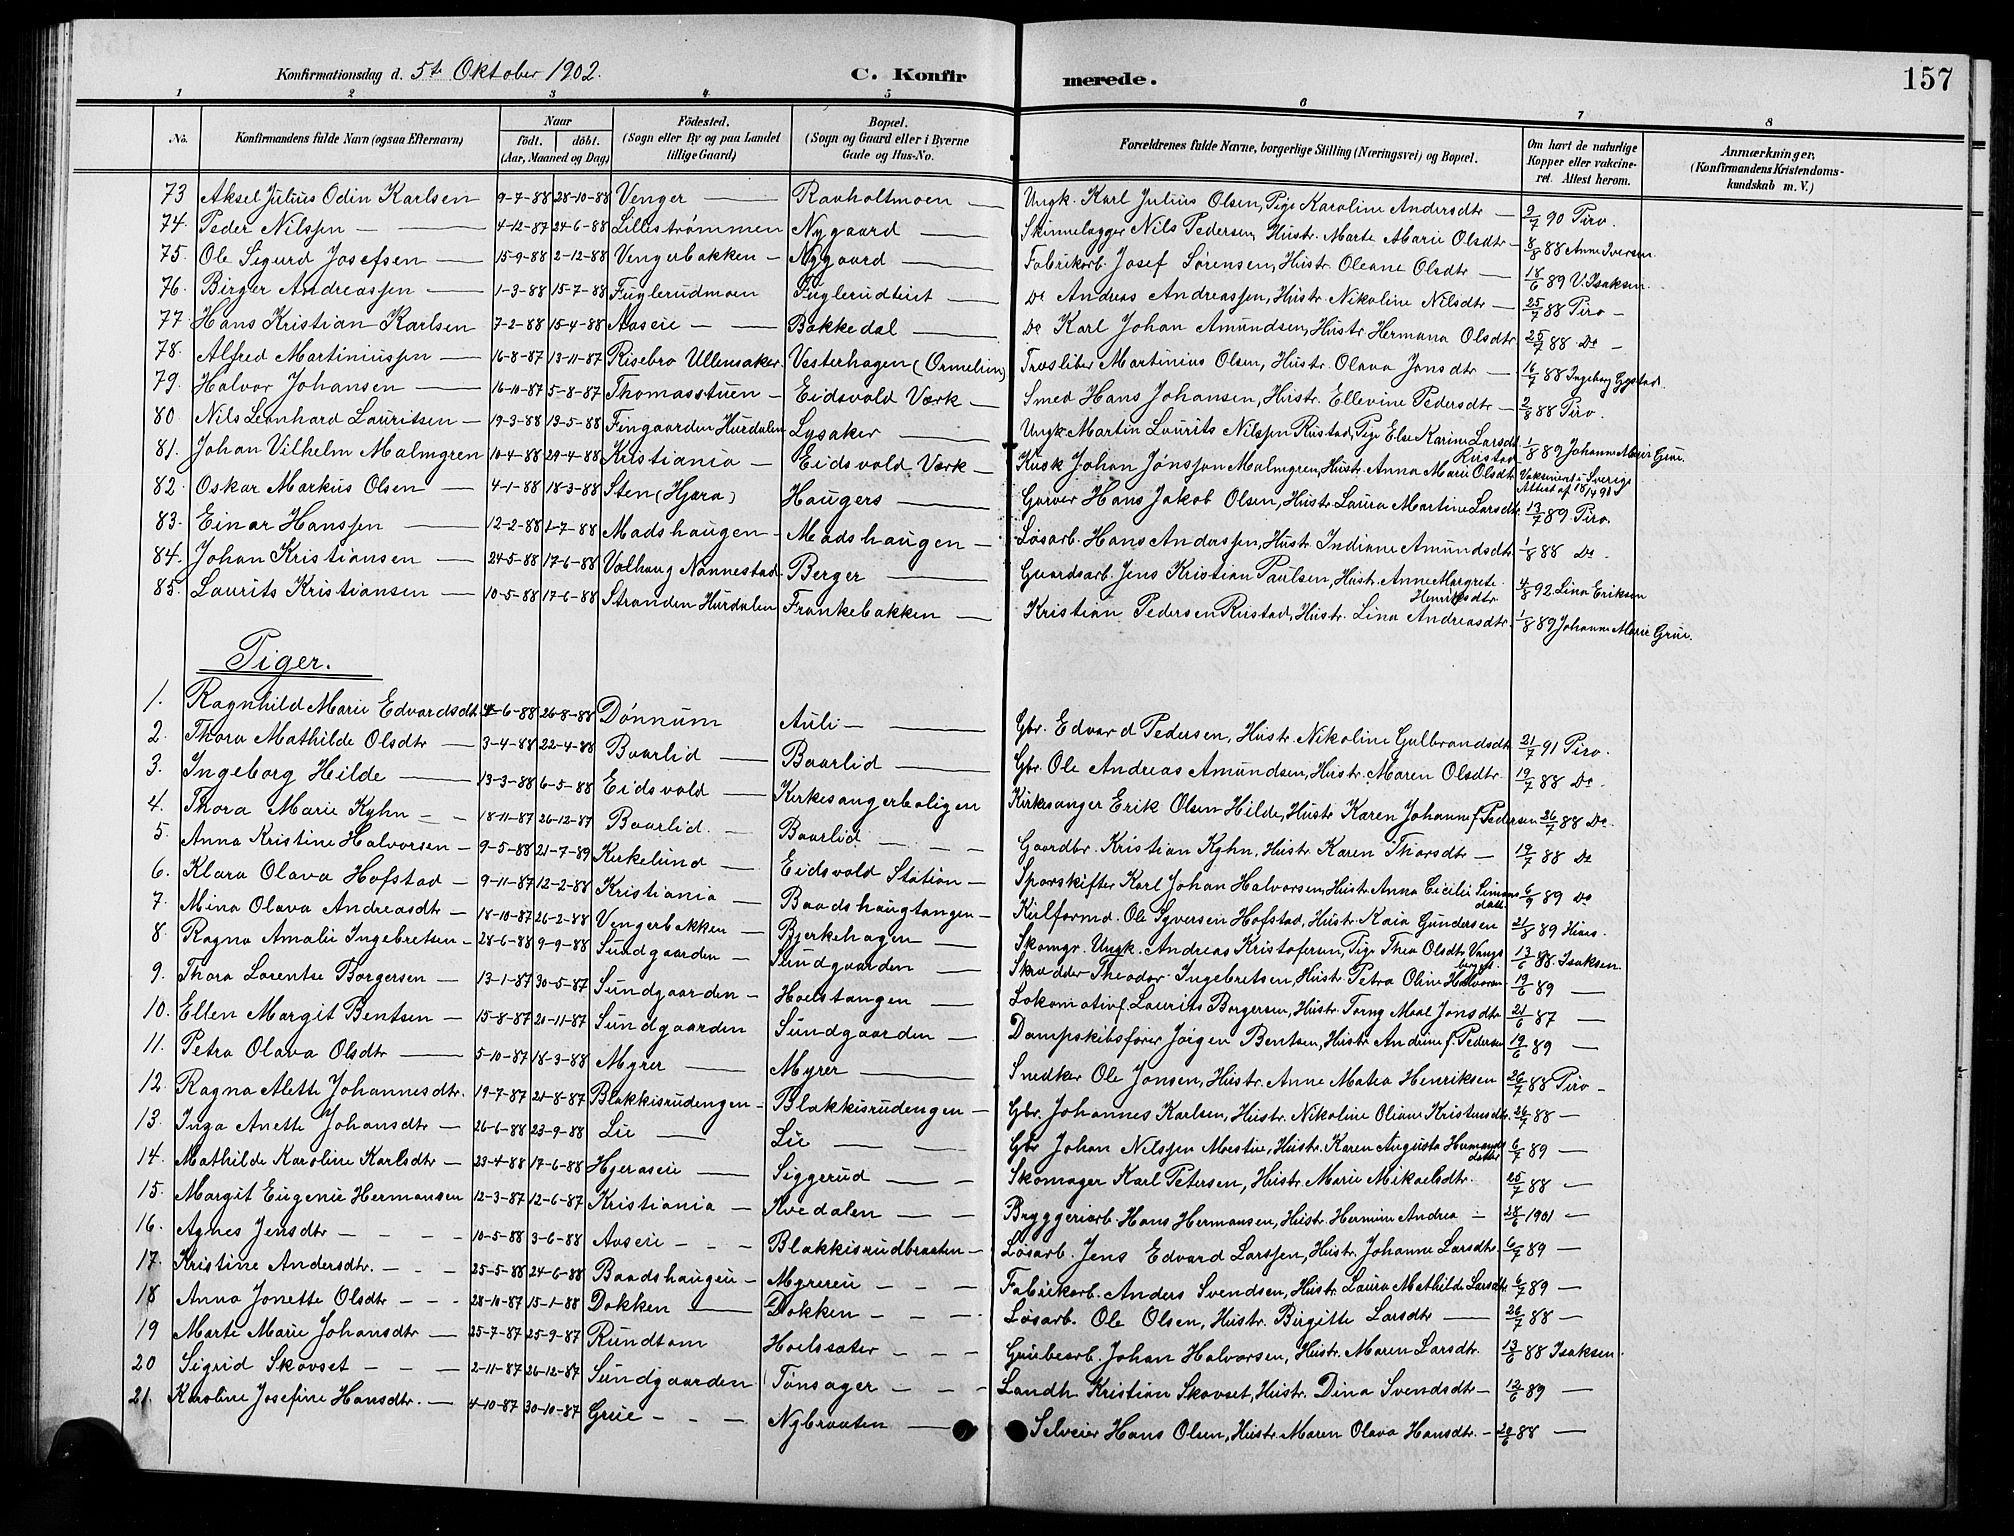 Konfirmationsdag d. 5te Oktober 1902. C. Konfirmerede. 157
1 2 3 4 5 6 7 8
No. Konfirmandens fulde Navn (ogsaa Efternavn) Naar födt. döbt. (Aar, Maaned og Dag) Födested. (Sogn eller By og paa Landet tillige Gaard) Bopæl. (Sogn og Gaard eller i Byerne Gade og Hus-No. Forældrenes fulde Navne, borgerlige Stilling (Næringsvei) og Bopæl. Om havt de naturlige Kopper eller vakcineret. Attest herom. Anmærkninger. (Konfirmandens Kristendomskundskab m. V.)
73 Aksel Julius Odin Karlsen 9-7-88 28-10-88 Venger Ravholtmoen Ungk. Karl Julius Olsen, Pige Karoline Andersdtr 9/7 90 Piro.
74. Peder Nilssen 4-12-87 24-6-88 Lillestrømmen Nygaard Skinnelægger Nils Pedersen, Hustr. Marte Marie Olsdtr 8/8 88 Anne Iversen
75. Ole Sigurd Josefsen 15-9-88 2-12-88 Vengerbakken Nygaard Fabrikarb. Josef Sørensen, Hustr. Oleane Olsdtr 18/6 89 V. Isaksen
76. Birger Andreassen 1-3-88 15-7-88 Fuglerudmoen Fuglerudteiet Do Andreas Andreassen, Hustr. Nikoline Nilsdtr 25/7 88 Piro
77. Hans Kristian Karlsen 7-2-88 15-4-88 Aaseie Bakkedal Do Karl Johan Amundsen, Hustr Hermana Olsdtr 25/7 88 Do
78. Alfred Martiniussen 16-8-87 13-11-87 Risebro Ullensaker Vesterhagen (Ormelien) Træsliber Martinius Olsen, Hustr Olava Jonsdtr 16/7 88 Ingeborg Gystad.
79. Halvor Johansen 16-10-87 5-8-87 Thomasstuen Eidsvold Værk Smed Hans Johansen, Hustr. Ellevine Pedersdtr 2/8 88 Piro.
80. Nils Leonhard Lauritsen 19-3-88 13-5-88 Fingaarden Hurdalen Lysaker Ungk. Martin Laurits Nilssen Rustad, Pige Else Karine Larsdt. Rustad 1/8 89 Johanne Marie Grue.
81. Johan Vilhelm Malmgren 10-4-88 29-4-88 Kristiania Eidsvold Værk Kusk Johan Jönsson Malmgren, Hustr. Anna Marie Olsdtr Vaksineret i Sverige Attest af 18/4 98
82. Oskar Markus Olsen 4-1-88 18-3-88 Sten (Hjæra) Haugers Garver Hans Jakob Olsen, Hustr Laura Martine Larsdtr. 13/7 89. Piro.
83. Einar Hanssen 12-2-88 1-7-88 Madshaugen Madshaugen Løsarb. Hans Anderssen, Hustr. Indiane Amundsdtr. 1/8 88 Do.
84. Johan Kristiansen 24-5-88 17-6-88 Valhaug Nannestad Berger Gaardsarb. Jens Kristian Paulsen, Hustr. Anne Margrete Henriksdtr 4/8 92. Lina Eriksen
85. Laurits Kristiansen 10-5-88 17-6-88 Stranden Hurdalen Frankebakken Kristian Pedersen Rustad, Hustr. Lina Andreasdtr. 1/8 89 Johanne Marie Grue.
Piger.
1. Ragnhild Marie Edvardsdt. 4-6-88 26-8-88 Dønnum Auli Gbr. Edvard Pedersen, Hustr. Nikoline Gulbrandsdt 21/7 91 Piro.
2. Thora Mathilde Olsdtr 3-4-88 22-4-88 Baarlid Baarlid Gbr. Ole Andreas Amundsen, Hustr. Maren Olsdtr. 19/7 88 Do.
3. Ingeborg Hilde 13-3-88 6-5-88 Eidsvold Kirkesangerboligen Kirkesanger Erik Olsen Hilde, Hustr Karen Johanne f. Pedersen 26/7 88 Do.
4. Thora Marie Kyhn 18-11-87 26-12-87 Baarlid. Baarlid Gaardbr. Kristian Kyhn, Hustr. Karen Thorsdtr 19/7 88 Do
5. Anna Kristine Halvorsen 9-5-88 21-7-89 Kirkelund Eidsvold Station Sporskifter Karl Johan Halvorsen, Hustr Anna Cicilie Simonsdatt. 6/9 89 Do
6. Klara Olava Hofstad 9-11-87 12-2-88 Kristiania Baadshaugtangen Kulformd. Ole Syversen Hofstad, Hustr. Kaia Gundersen 21/8 89
7. Mina Olava Andreasdtr 18-10-87 26-2-88 Vengerbakken Bjerkehagen Skomgr. Ungk. Andreas Kristofersen, Pige Thea Olsdtr 13/6 88. Isaksen.
8. Ragna Amalie Ingebretsen 28-6-88 9-9-88 Sundgaarden Sundgaarden Skrædder Theodor Ingebretsen, Hustr Petra Oline Halvorsen 19/6 89
9. Thora Lorentse Borgersen 13-1-87 30-5-87 Sundgaarden Hoelstangen Lokomotivf. Laurits Borgersen, Hustr. Torny Moal Jonsdtr 21/6 87
10. Ellen Margit Bentsen 15-8-87 20-11-87 Sundgaarden Sundgaarden Dampskibsfører Jørgen Bentsen, Hustr Andrine f. Pedersen 19/6 89
11. Petra Olava Olsdtr 5-10-87 18-3-88 Myrer Myrer Snedker Ole Jonsen, Hustr. Anne Matea Henriksen 26/7 88 Piro
12. Ragna Alette Johannesdtr. 19-7-87 21-8-87 Blakkisrudengen Blakkisrudengen Gbr. Johannes Karlsen, Hustr. Nikoline Oliane Kristensdtr. 26/7 88
13. Inga Anette Johansdtr 26-6-88 23-9-88 Lie Lie Gbr Johan Nilssen Mostue, Hustr. Karen Augusta Hermandsdatter 6/7 89
14. Mathilde Karoline Karlsdtr 23-4-88 17-6-88 Hjeraseie Siggerud Skomager Karl Petersen, Hustr. Marie Mikaelsdtr. 25/7 88
15. Margit Eugenie Hermansen 12-3-87 12-6-87 Kristiania Kvedalen Bryggeriarb. Hans Hermansen, Hustr. Hermine Andrea 28/6 1901
16. Agnes Jensdtr 10-5-88 3-6-88 Aaseie Blakkisrudbraaten Løsarb. Jens Edvard Larssen, Hustr. Johanne Larsdtr. 6/7 89
17. Kristine Andersdtr. 25-5-88 24-6-88 Baadshaugen Myrereie Fabrikarb. Anders Svendsen, Hustr. Laura Mathilde Larsdtr 6/7 89
18 Anna Jonette Olsdtr 28-10-87 15-1-88 Dokken Dokken Løsarb. Ole Olsen, Hustr. Birgitte Larsdtr 26/7 88
19 Marte Marie Johansdtr 25-7-87 25-9-87 Rundtom Hoelssæter Grubearb. Johan Halvorsen, Hustr. Maren Larsdtr. 13/6 88 Isaksen.
20 Sigrid Skovset 2-11-87 26-12-87 Sundgaarden Tønsager Landh. Kristian Skovset, Hustr. Dina Svendsdtr 12/6 89
21. Karoline Josefine Hansdtr. 4-10-87 30-10-87 Grue Nybraaten Selveier Hans Olsen, Hustr. Maren Olava Hansdtr. 20/6 88